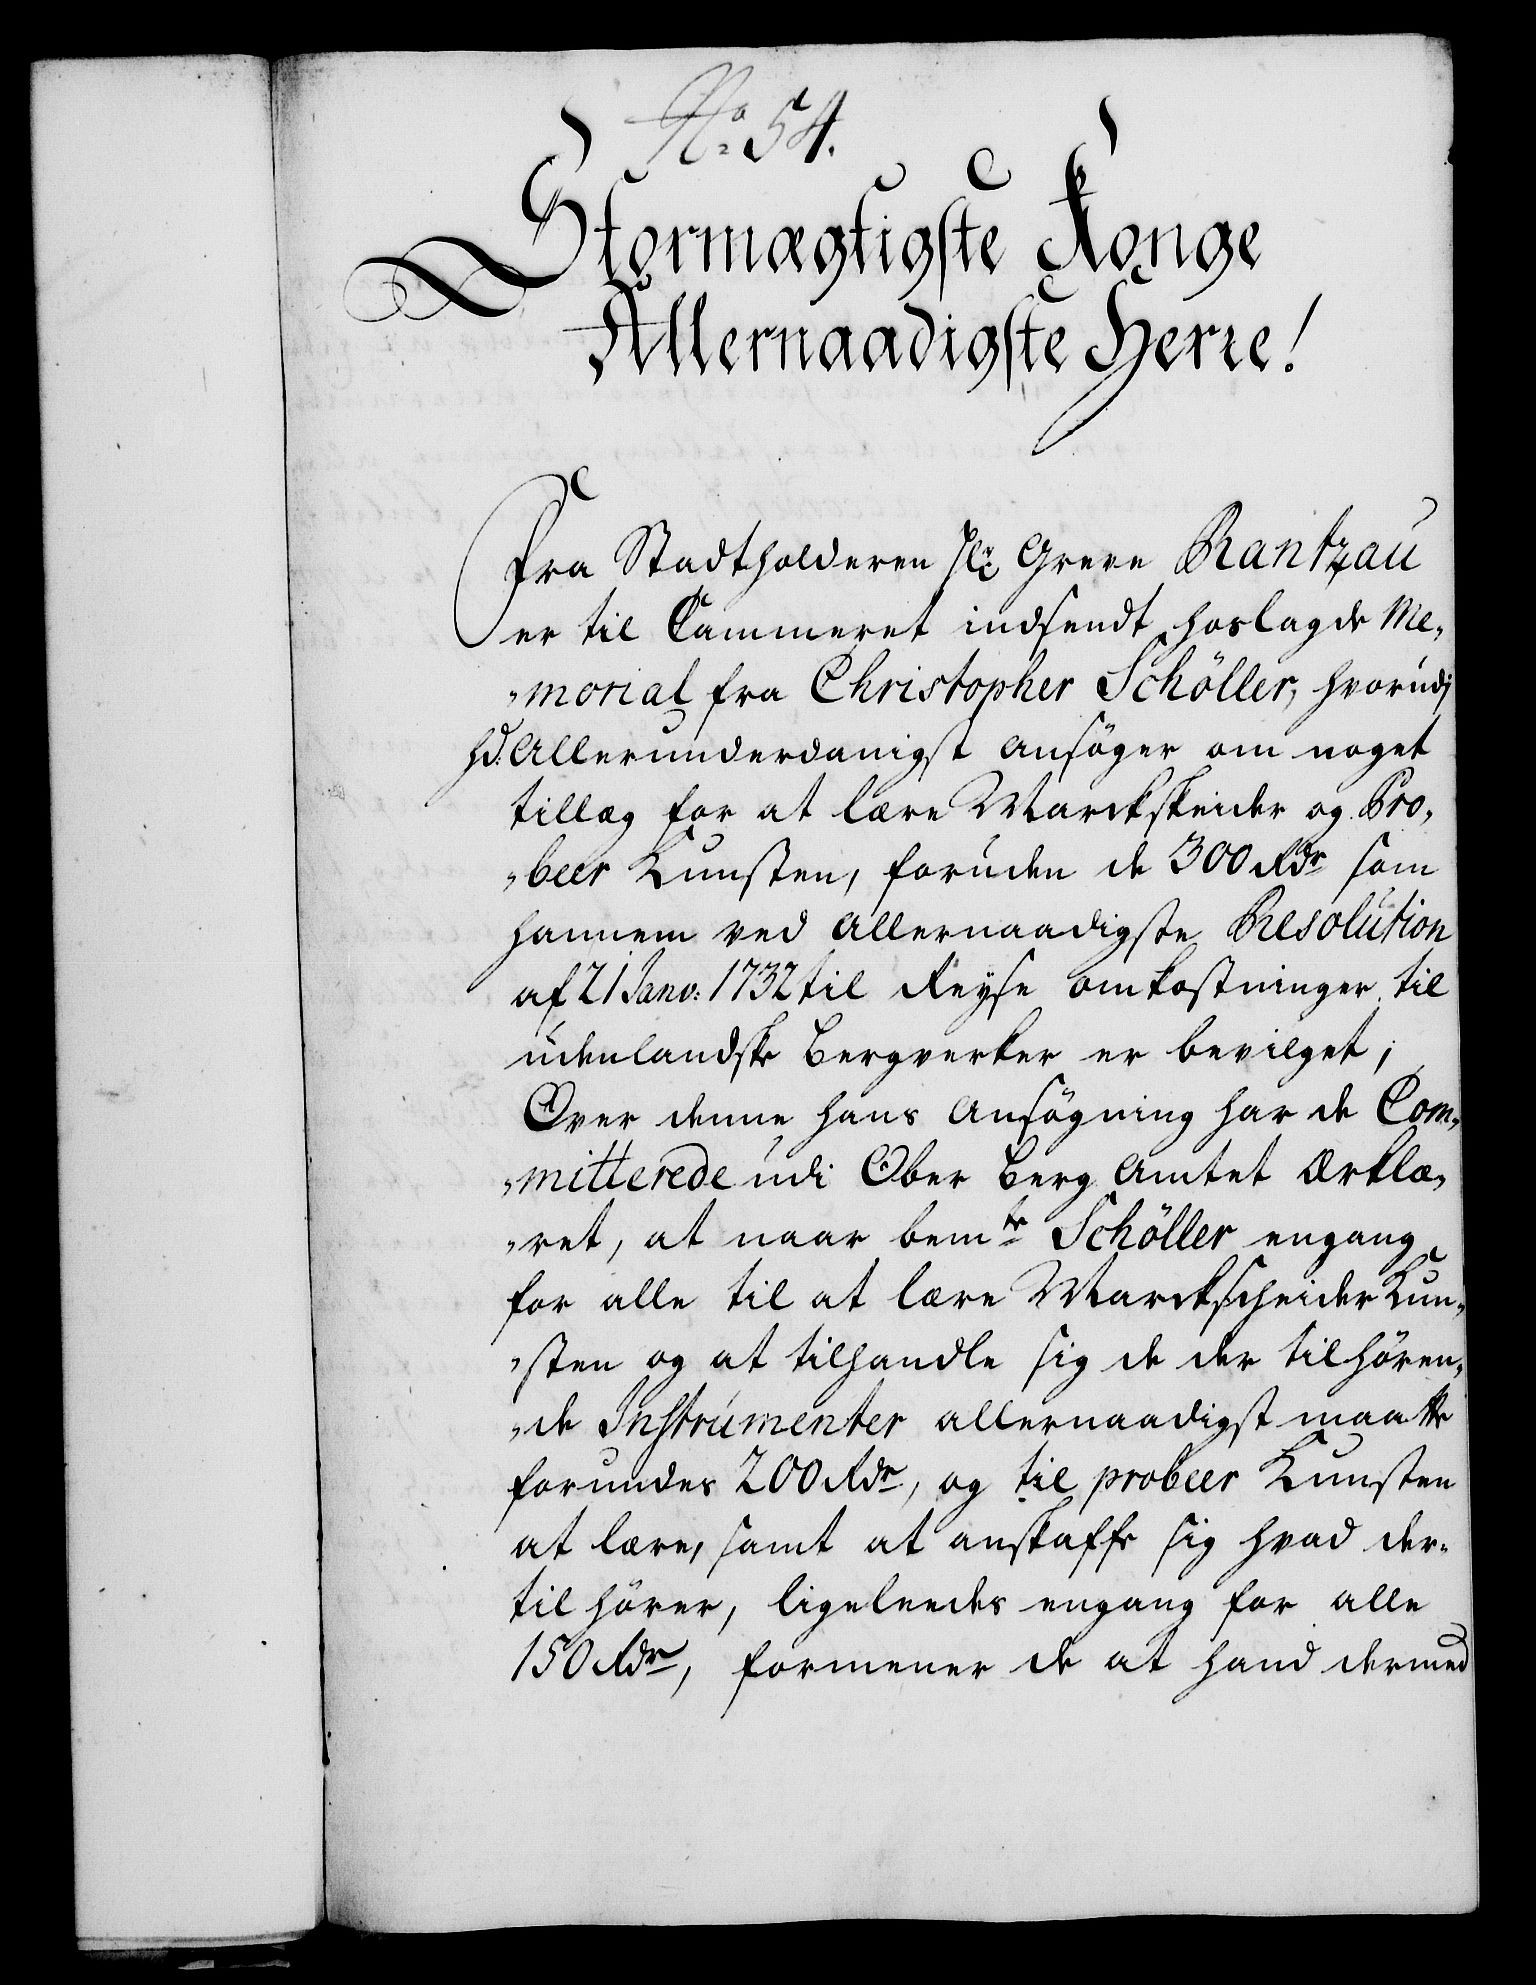 No. 54.
Stormægtigste Konge
Allernaadigste Herre!
Fra Stadtholderen Hr. Greve Rantzau
er til Cammeret indsendt hoslagde Me-
-morial fra Christopher Schöller, hvorudj
hd: Allerunderdanigst ansöger om noget
tillæg for at lære Marckskeider og Pro-
-beer Kunsten, foruden de 300 Rdr som
hannem ved allernaadigste Resolution
af 21 Janv: 1732 til Reyse omkostninger til
udenlandske Bergverker er bevilget;
Over denne hans Ansögning har de Com-
-mitterede udi Ober Berg Amtet Erklæ-
-ret, at naar bemte Schöller engang
for alle til at lære Marckscheider Kun-
-sten og at tilhandle sig de der tilhören-
-de Instrumenter allernaadigst maatte
forundes 200 Rdr, og til probeer Kunsten
at lære, samt at anskaffe sig hvad der-
til hörer, ligeleedes engang for alle
150 Rdr, formener de at hand dermed